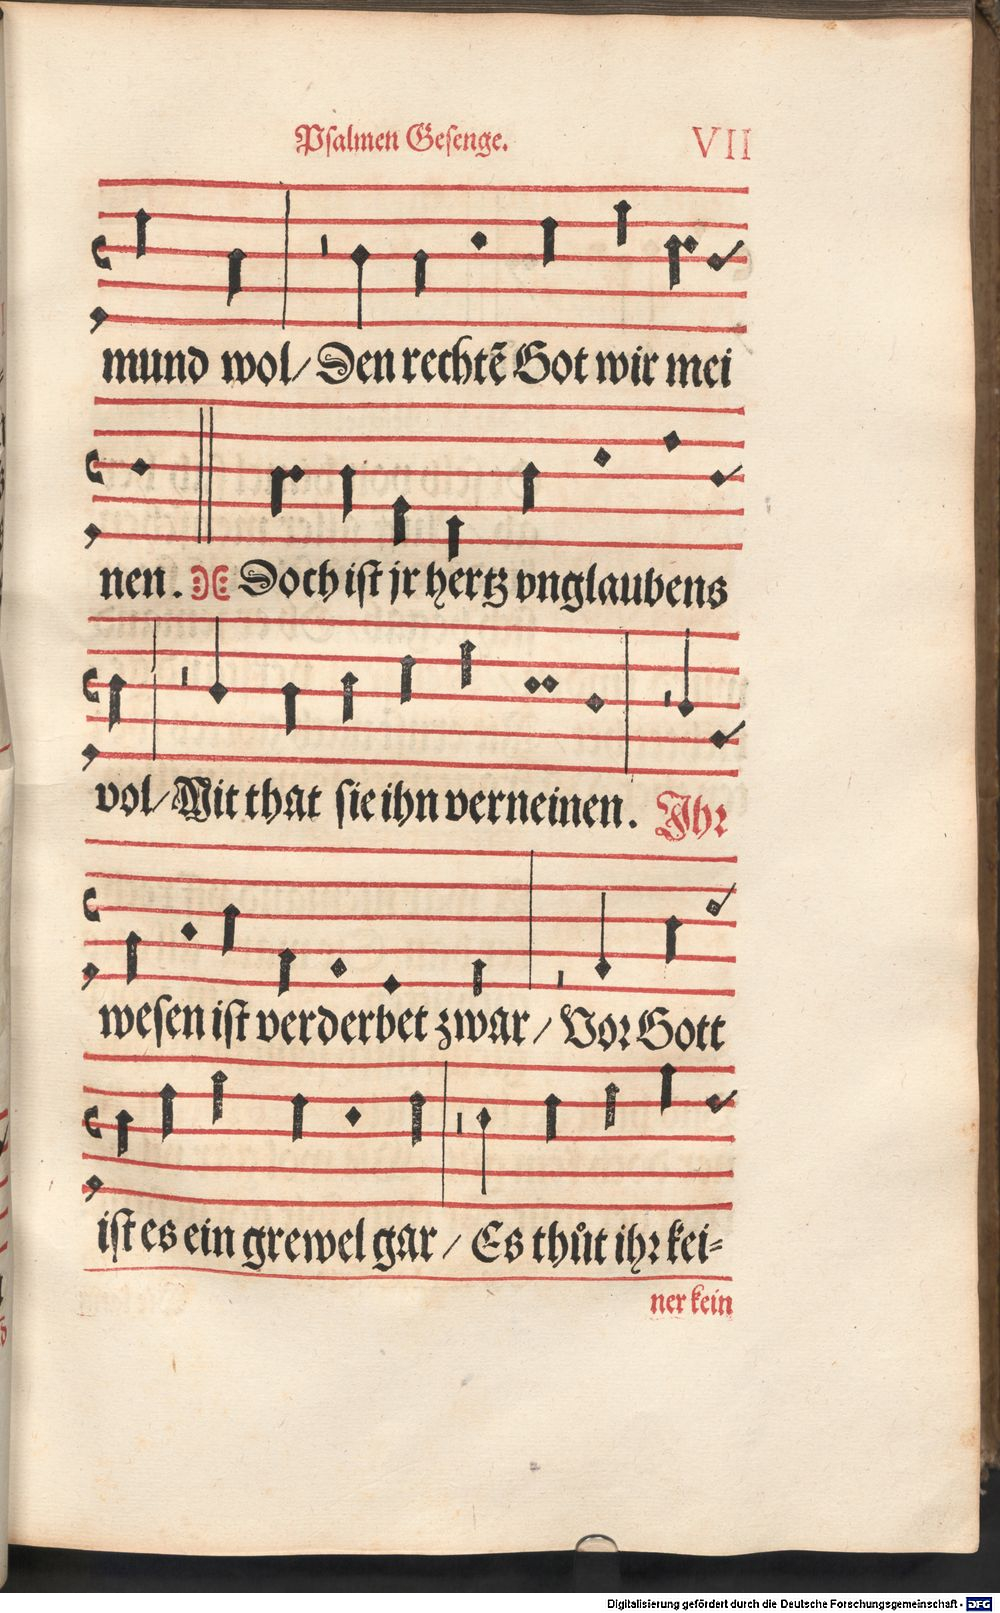 Psalmen Gesenge. VII
mund wol/ Den rechtẽ Got wir mei
nen. Doch ist jr hertz vnglaubens
vol/ Mit that sie ihn verneinen. Ihr
wesen ist verderbet zwar / Vor Gott
ist es ein grewel gar / Es thůt ihr kei⸗
ner kein
Digitalisierung gefördert durch die Deutsche Forschungsgemeinschaft - DFG